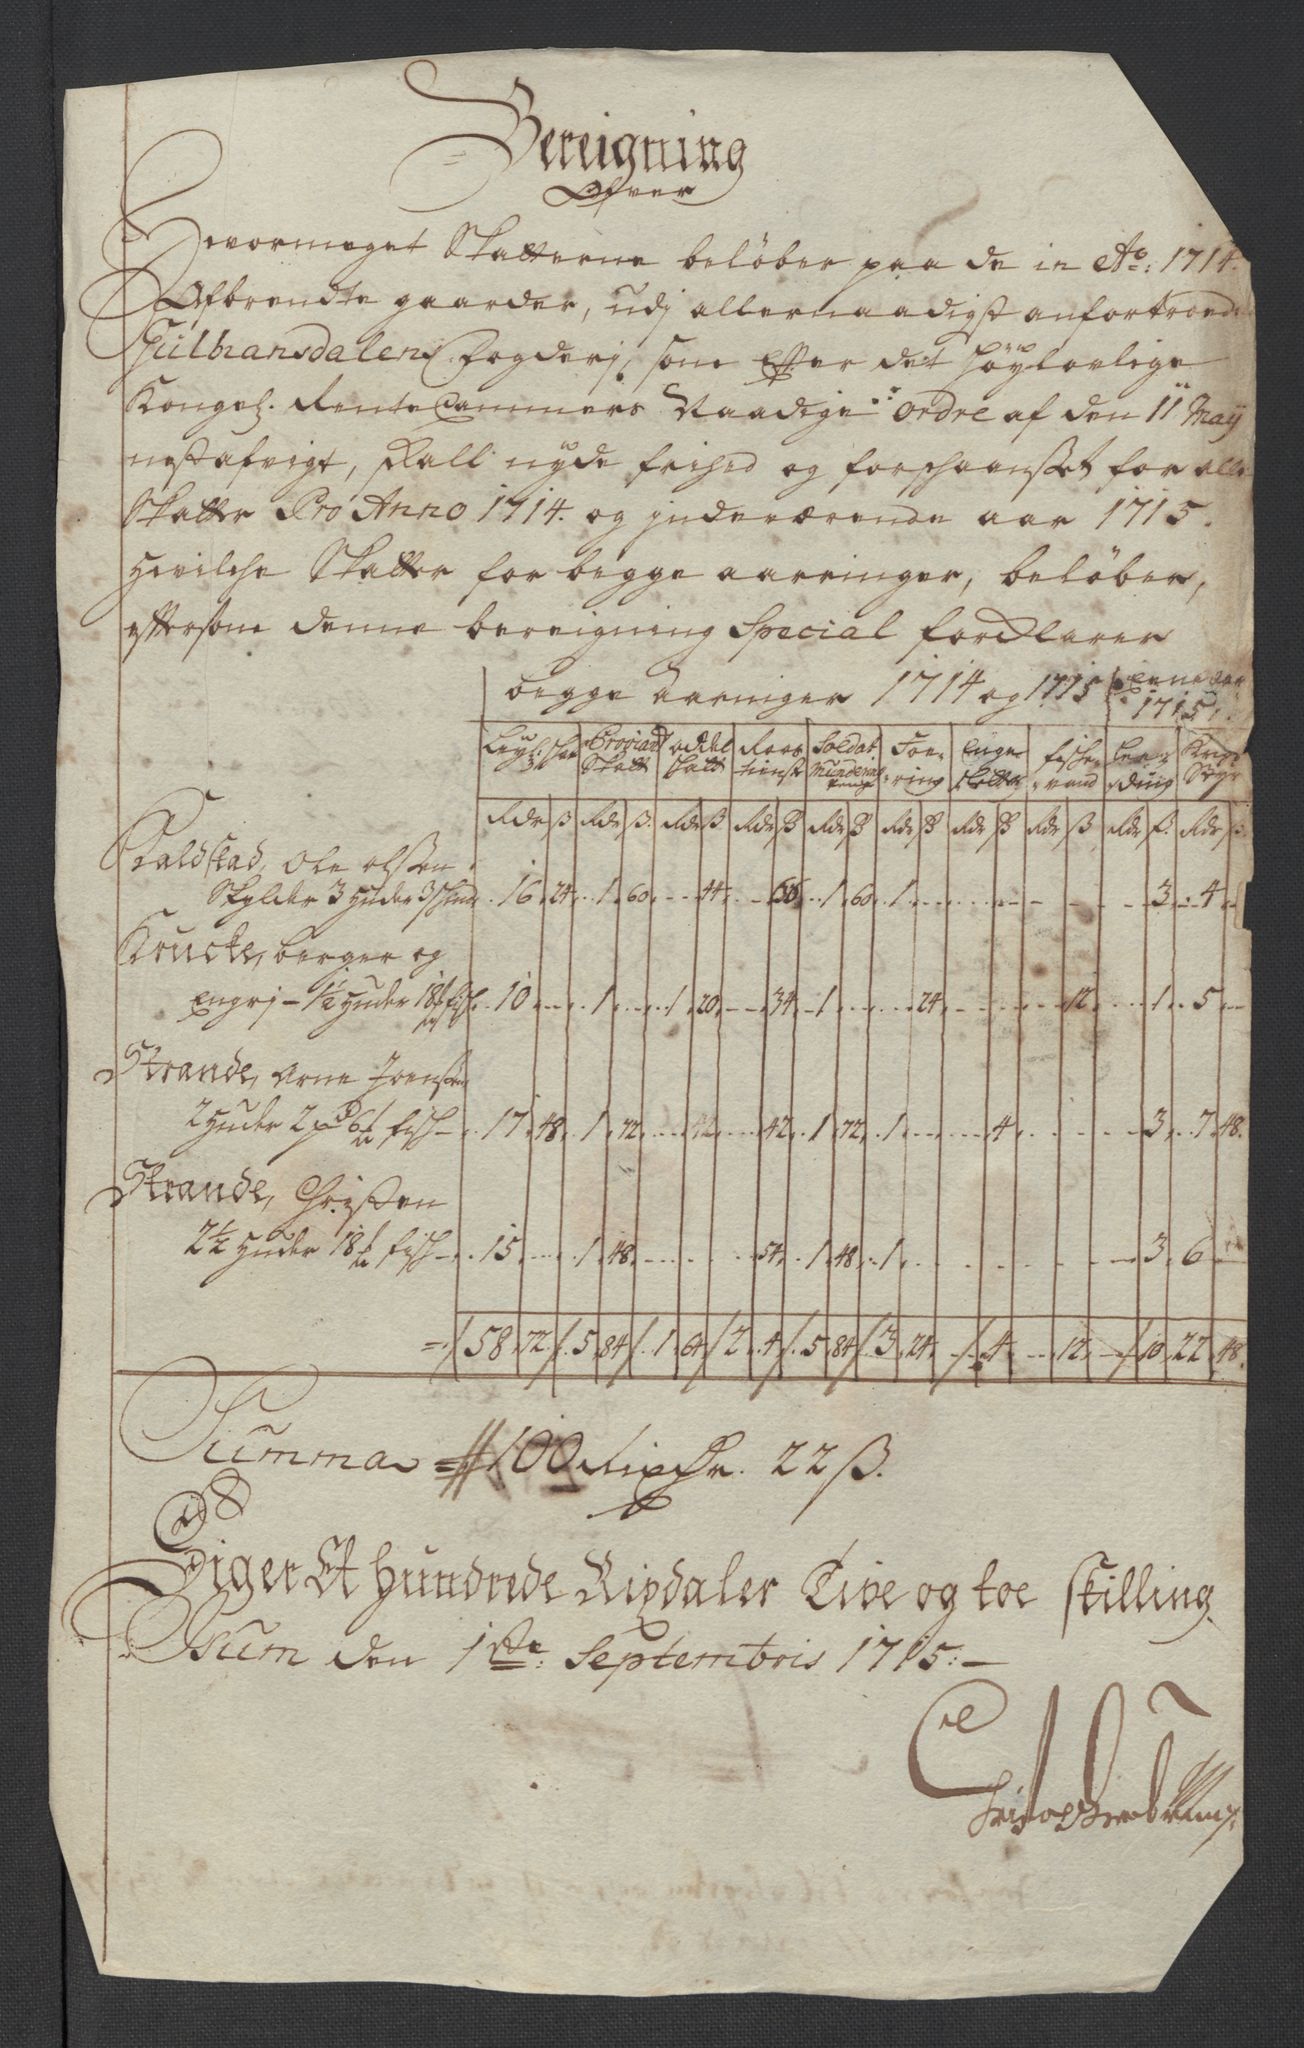 Bereigning
Ofver
Hvormeget Skatterne beløber paa de in Ao: 1714.
Afbrendte gaarder, udj allernaadigst anfortroede
Gulbransdalens Fogderj, som efter det Høylovlige
Kongel. RenteCammers Naadige ordre af den 11 May
nestafvigt, skall nyde frihed og forschaanset for alle
Skatter Pro Anno 1714. og indeværende aar 1715.
Hvilche Skatter for begge aaringer, beløber,
eftersom denne bereigning Special fordlarer
begge aaringer 1714 og 1715 | Denne aar 1715
Leyl: Skat | Proviant Skatt | oddel skatt | Roes tienst | Soldat Munderings penge | Foe-ring | Enge skatter | fische-vand | Lee-ding | Krigs Styr
Rdr ß | Rdr ß | Rdr ß | Rdr ß | Rdr ß | Rdr ß | Rdr ß | Rdr ß | Rdr ß | Rdr ß
Kaldstad, Ole olsen
Skylder 3 Huder 3 schind 16 24 1 60 44 1 60 1 3 4
Krucke, berger og
Engrj - 1½ Huder 18 fisch 10 1 1 20 34 1 24 12 1 5
Strande, Arne Joensen
2 Huder 2 pd 6 fisch 17 48 1 72 42 1 72 1 4 3 7 48.
Strande, Christen
2½ Huder 18 fisch 15 1 48 54 1 48 1 3 6
58 72 5 84 1 64 2 4 5 84 3 24 4 12 10 22 48.
Summa 100 Rixdr. 22 ß.
Siger Et Hundrede Rixdaler Tive og toe skilling
Sum den 1ste Septembris 1715.